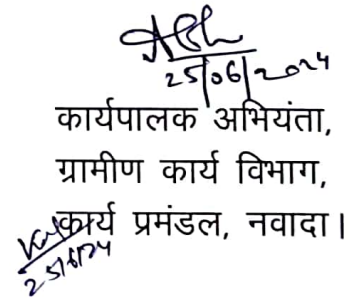 25/06/2024
कार्यपालक अभियंता,
ग्रामीण कार्य विभाग,
कार्य प्रमंडल, नवादा।
25/6/24